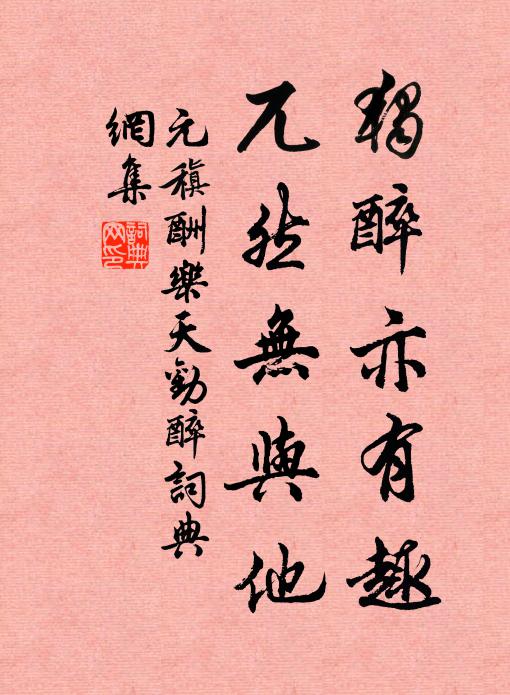 獨醉亦有趣
兀然無與他
元稹酬樂天勸醉詞典
網集
詞典網印